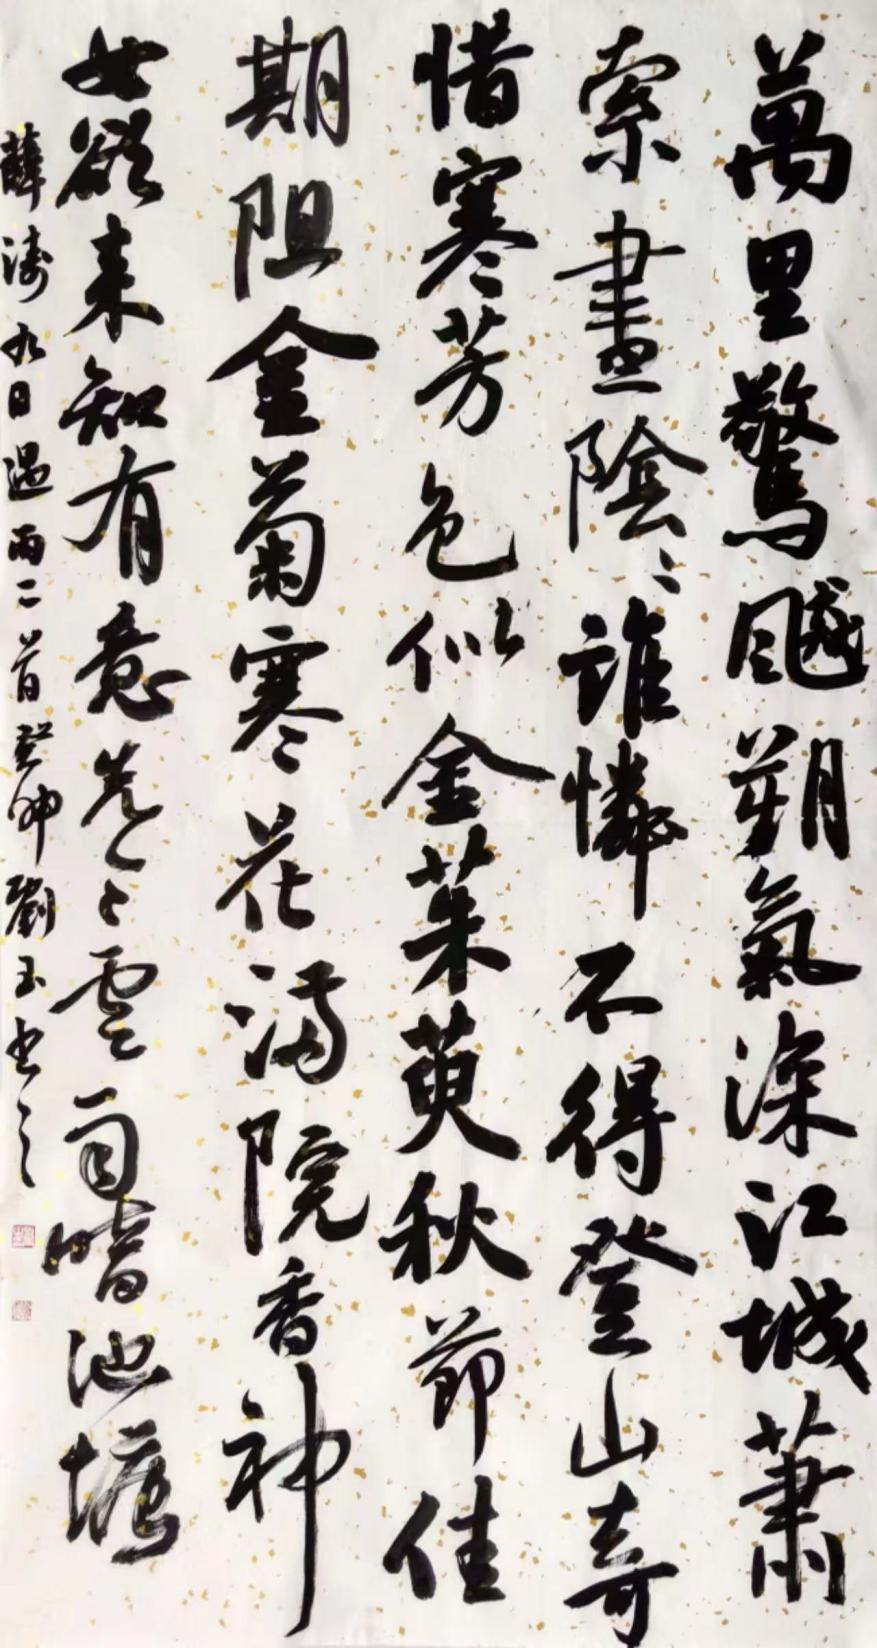 萬里驚飈朔氣深江城蕭
索晝陰〻誰憐不得登山奇
惜寒芳色似金茱萸秋節佳
期阻金菊寒花滿院香神
女欲來知有意先〻雲雨暗池塘
薛濤九日遇雨二首癸卯劉玉書之